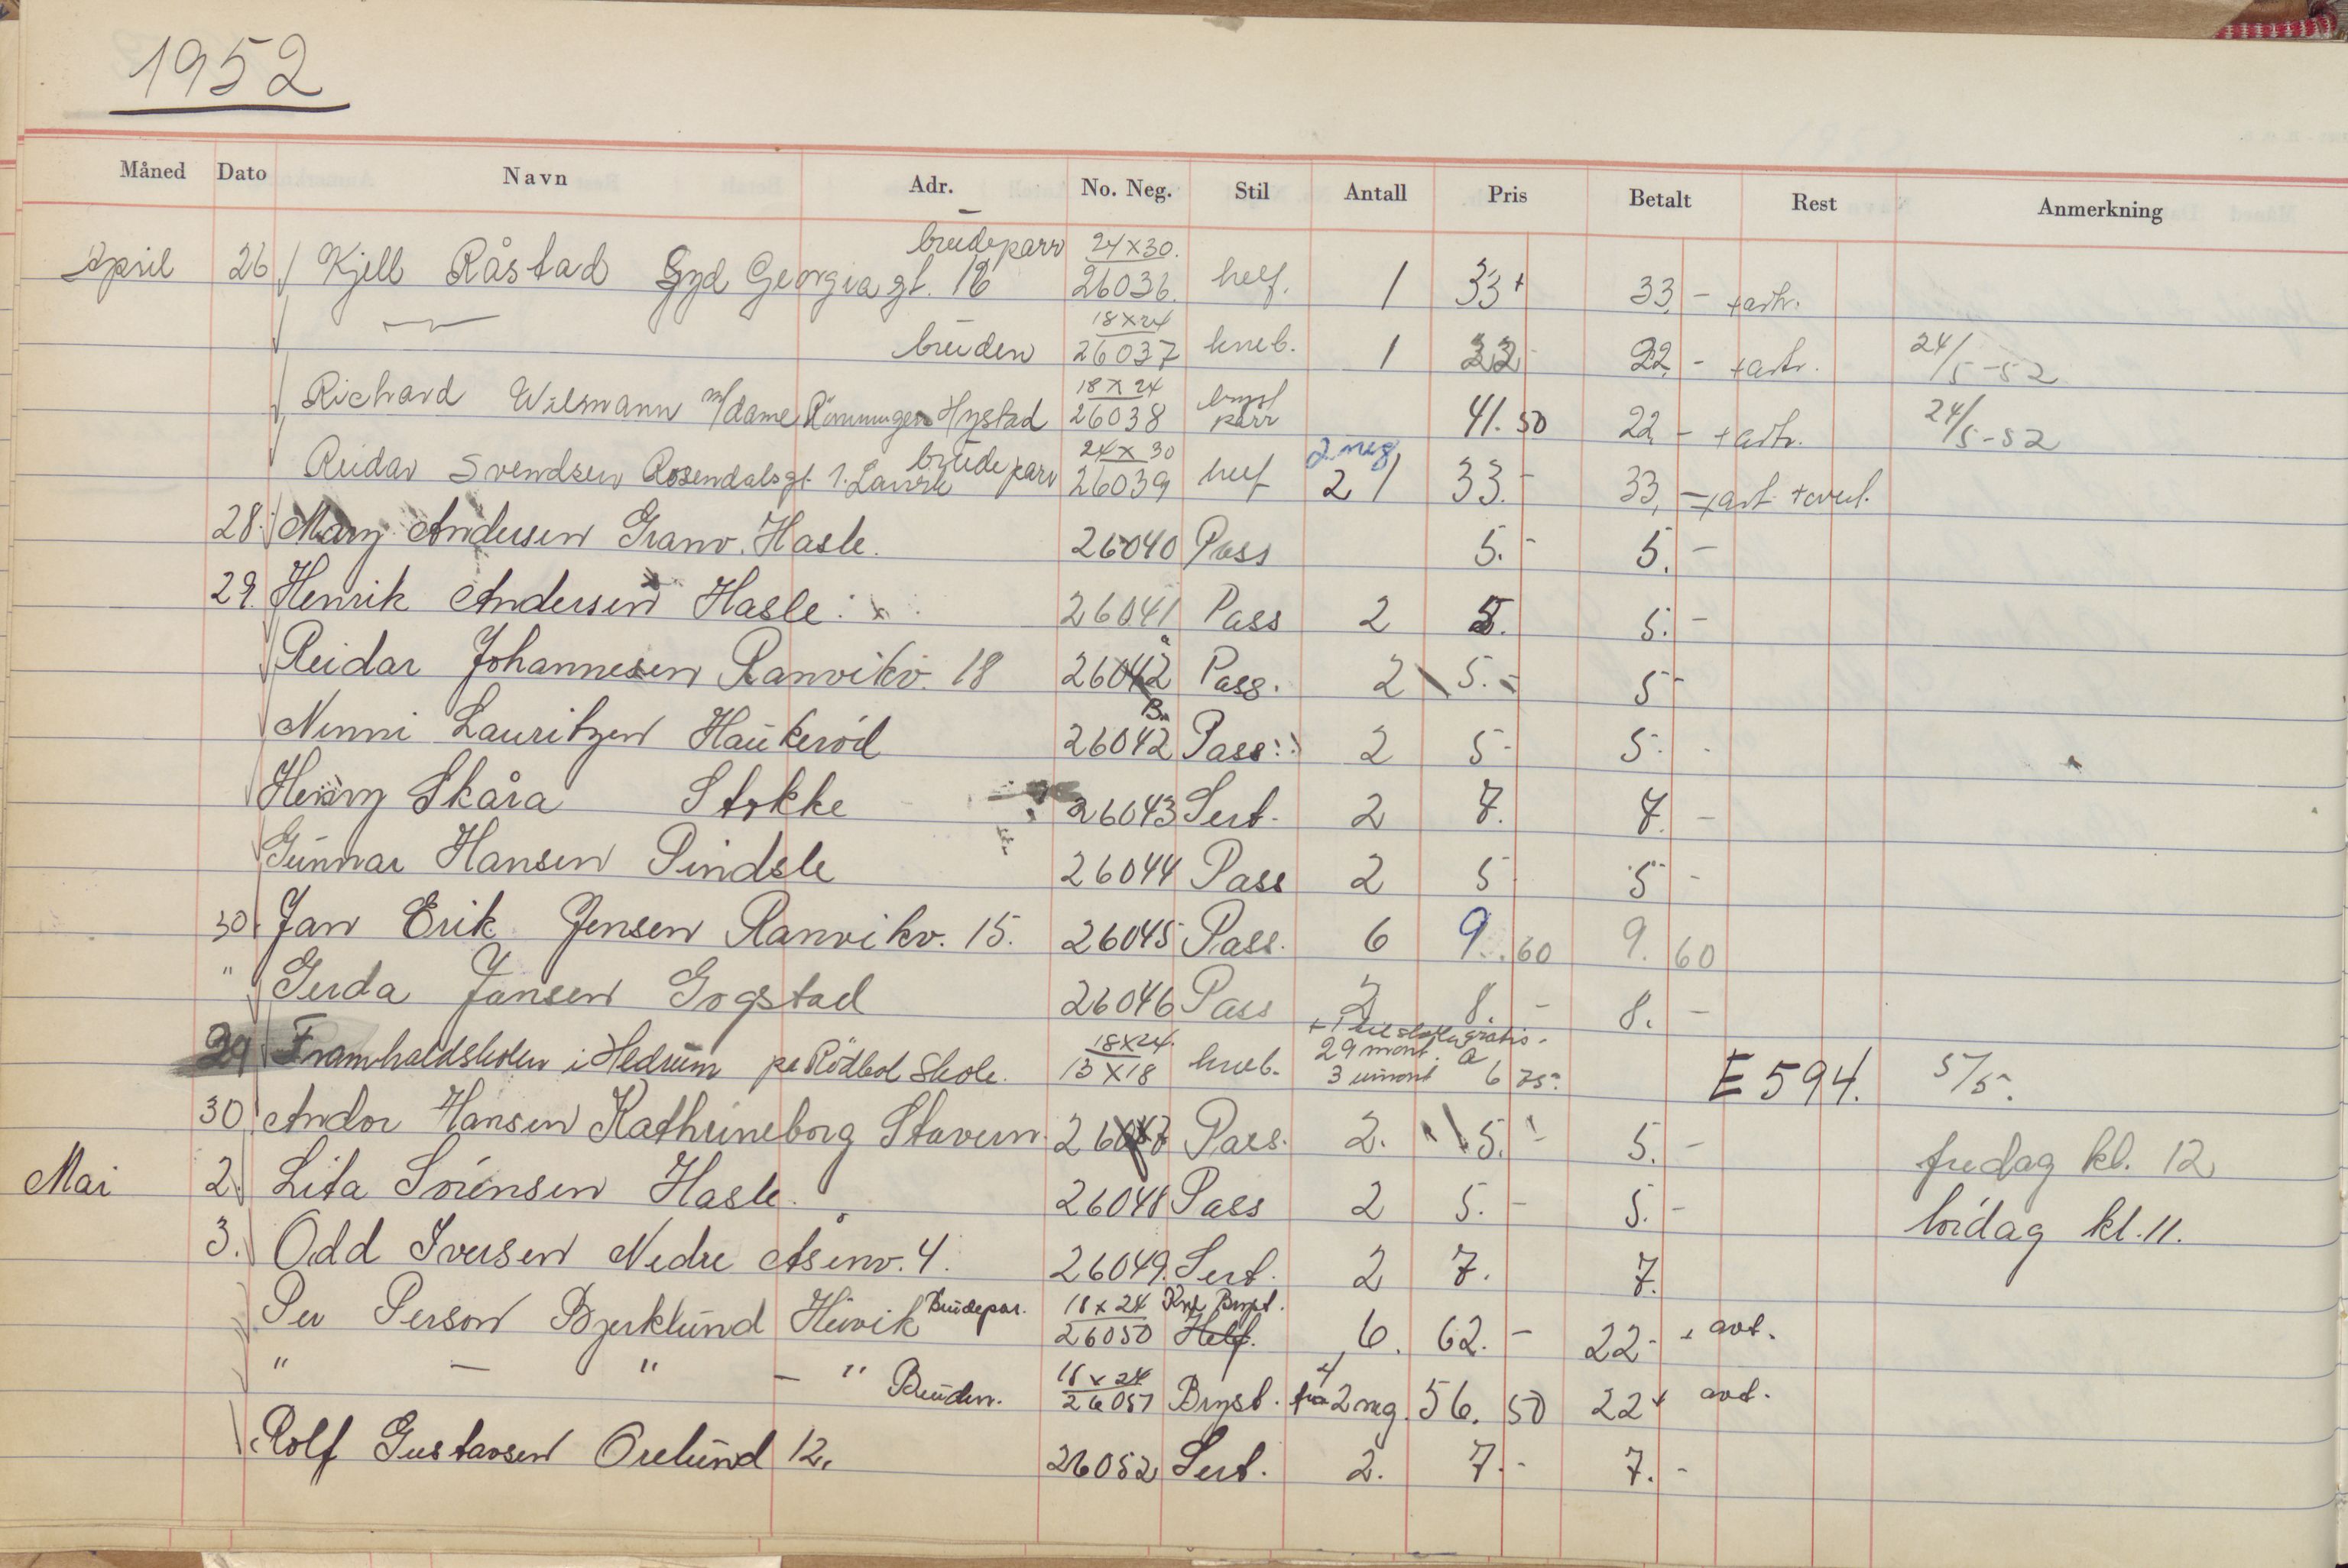 1952
Måned Dato Navn Adr. No. Neg. Stil Antall Pris Betalt Rest Anmerkning
brudeparr 24x30.
April 26 Kjell Råstad Gyd Georgia gt. 16 26036. helf. 1 33+ 33,- +avtr.
18x24
bruden 26037 kneb. 1 22 22,- +avtr. 24/5-52
18x24 bryst
Richard Wilsmann m/dame Hystad 26038 parr 41.50 22,- +avtr. 24/5-52
brudeparr 24x30 2 neg.
Reidar Svendsen Rosendalsgt. 1. Larvik 26039 helf 2 1 33.- 33,-
28. Mary Andersen Granv. Hasle. 26040 Pass 5.- 5.-
29. Henrik Andersen Hasle. 26041 Pass 2 5. 5.-
Reidar Johannesen Ranvikv. 18 26042 a Pass. 2 5.- 5-
Ninni Lauritzen Haukerød 26042 B. Pass. 2 5- 5.-
Henry Skåra Stokke 26043 Sert. 2 7. 7.-
Gunnar Hansen Pindsle 26044 Pass 2 5 5-
30. Jan Erik Jensen Ranvikv. 15. 26045 Pass. 6 9.60 9.60
" Gerda Jansen Gogstad 26046 Pass 2 8.- 8.-
+1 til skolen gratis.
18x24. 29 mont. a
29 Framhaldskolen i Hedrum på Rødbøl Skole. 13x18 kneb. 3 umont 6 75.- E 594. 5/5.
30 Andor Hansen Kathrineborg Stavern. 26047 Pass. 2. 5.- 5.- fredag kl. 12
Mai 2. Lita Sørensen Hasle. 26048 Pass 2 5.- 5.- lørdag kl. 11.
3. Odd Iversen Nedre Åsenv. 4. 26049. Sert. 2 7. 7.
Brudepar. 18x24 Kne Bryst.
Per Person Bjerklund Huvik 26050 Helf. 6. 62.- 22.- + avt.
18x24 4
" — " — " Bruden. 26051 Bryst. fra 2 neg. 56.50 22+ avt.
Rolf Gustavsen Orelund 12. 26052 Sert. 2. 7.- 7.-